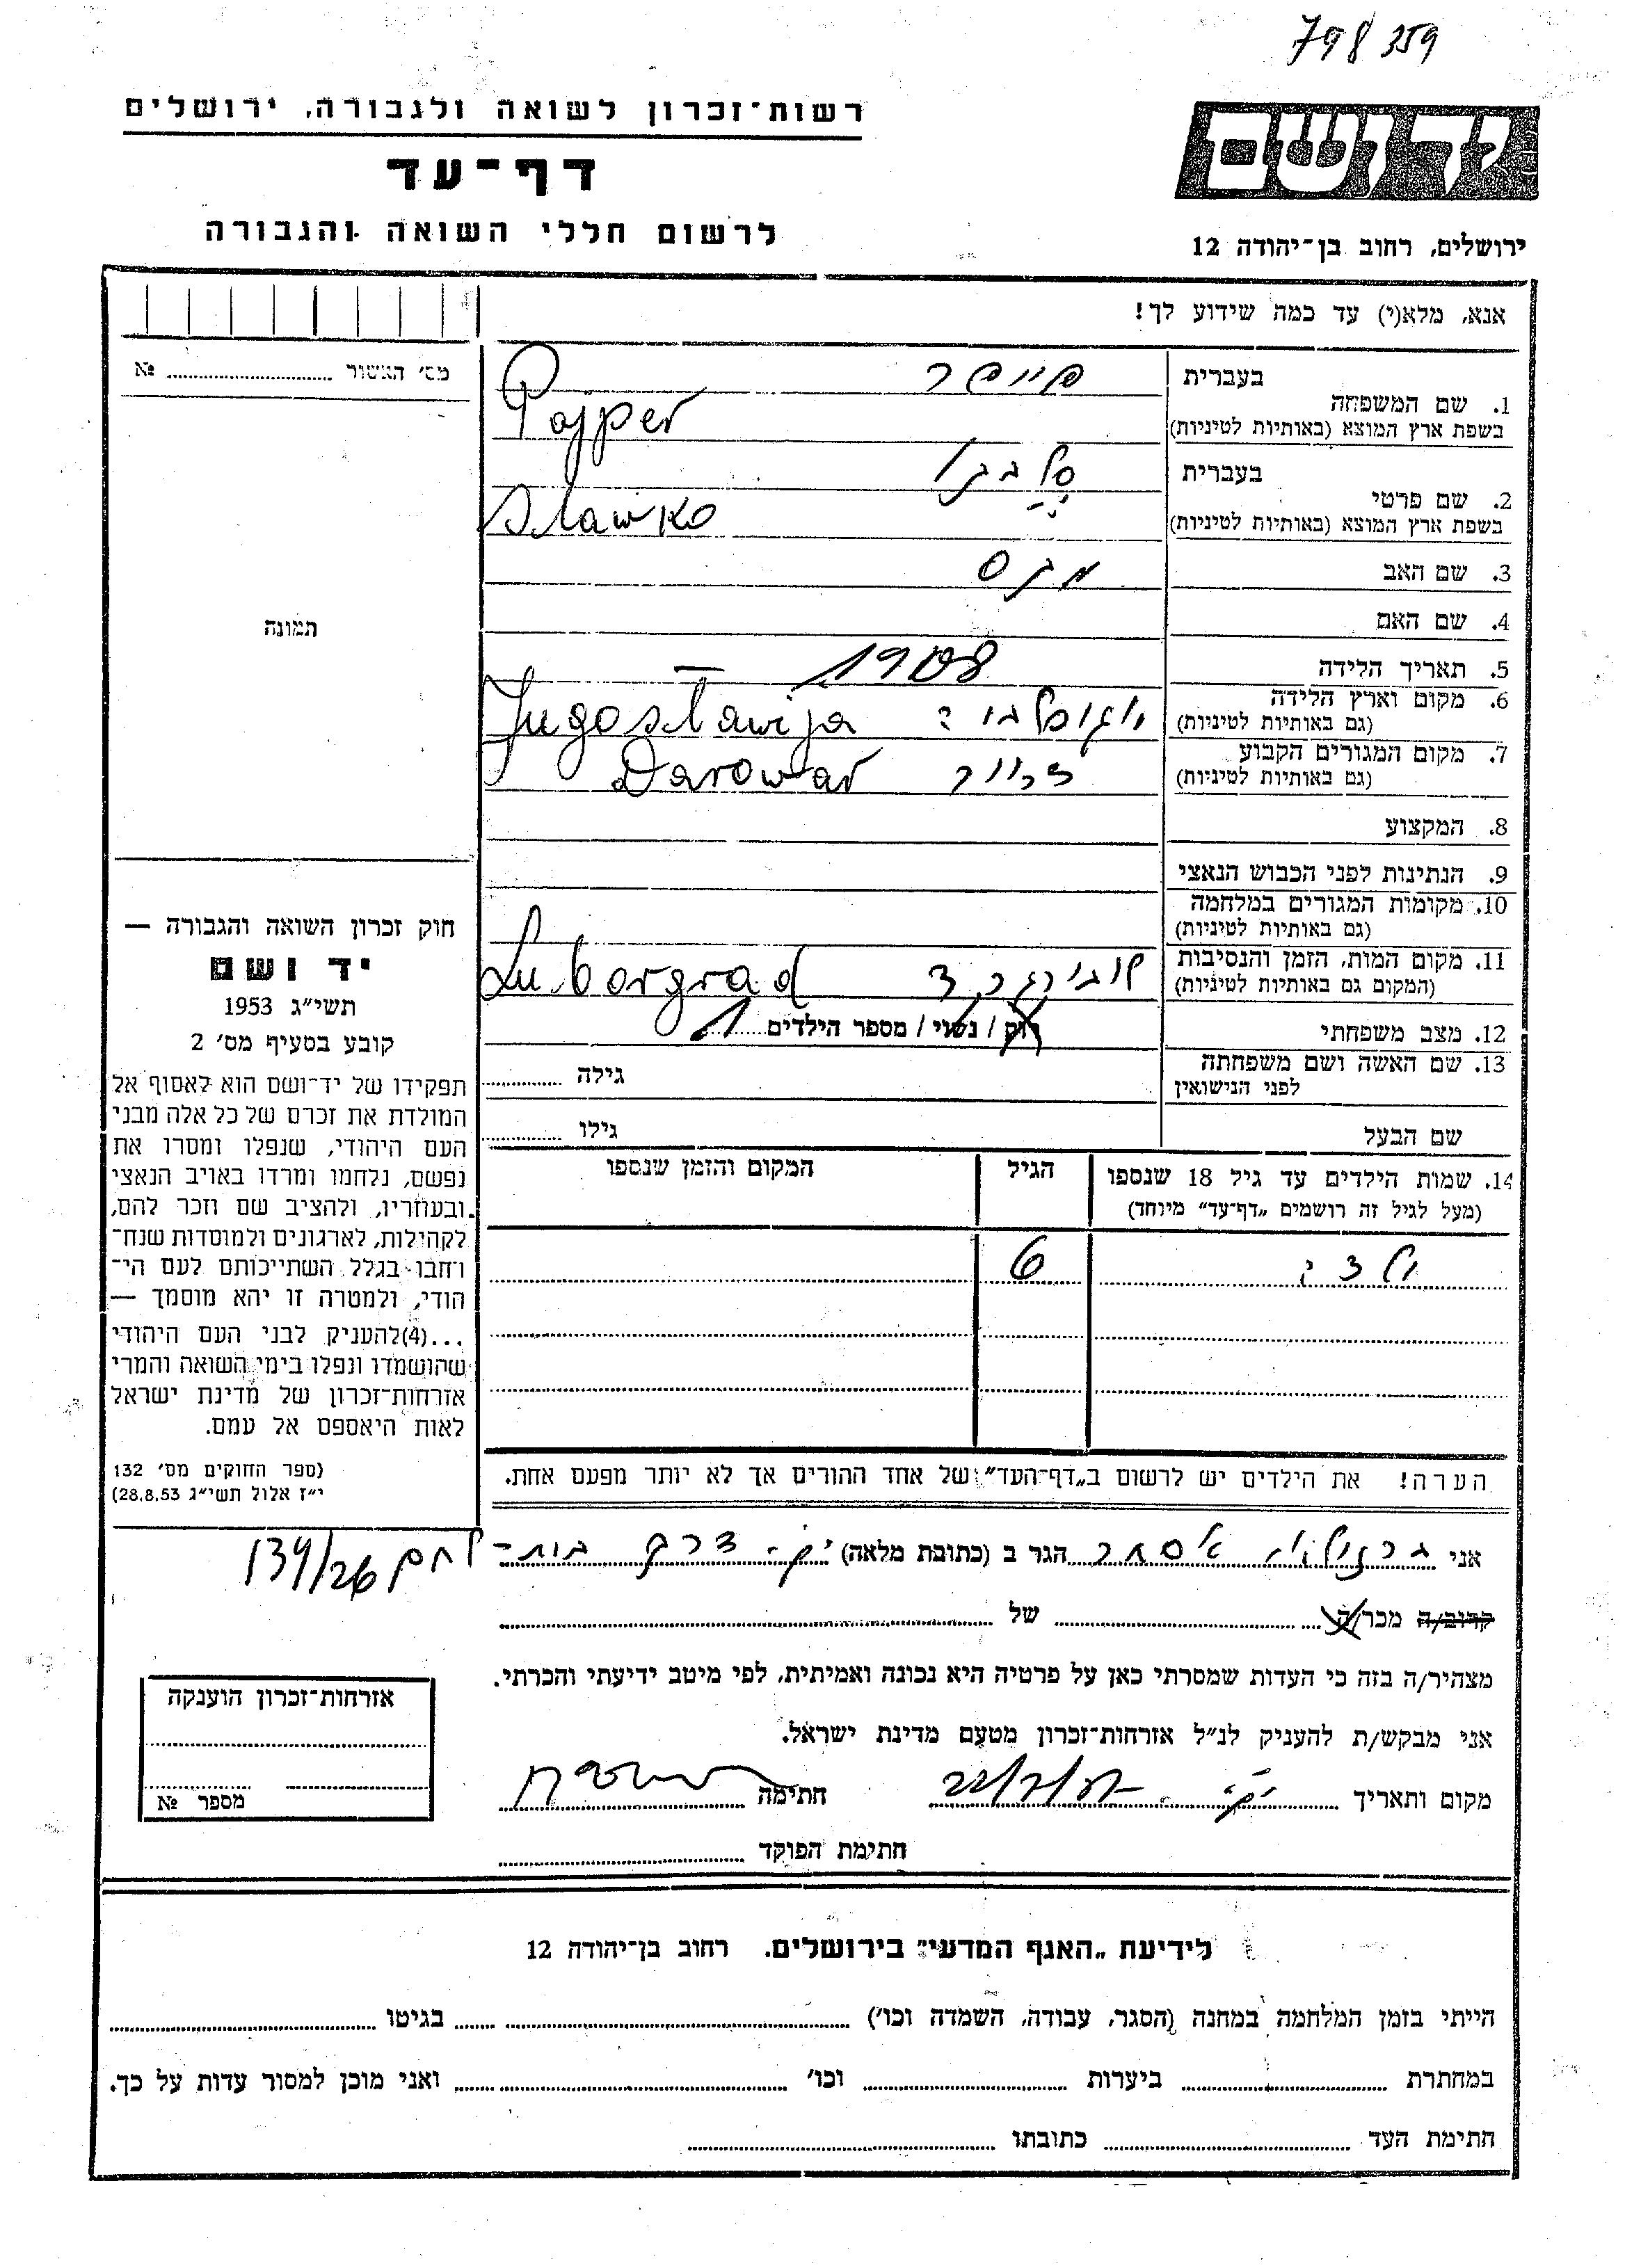 798359
רשות־זכרון לשואה ולגבורה, ירושלים
דף־עד
לרשום חללי השואה והגבורה
יד ושם
ירושלים, רחוב בן־יהודה 12
אנא, מלא(י) עד כמה שידוע לך!
מס׳ האשור № ........
תמונה
1. שם המשפחה
בעברית פייפר
בשפת ארץ המוצא (באותיות לטיניות) Pajper
2. שם פרטי
בעברית סלבקו
בשפת ארץ המוצא (באותיות לטיניות) Slawko
3. שם האב מקס
4. שם האם
5. תאריך הלידה 1908
6. מקום וארץ הלידה
(גם באותיות לטיניות) יוגוסלביה Jugoslawija
7. מקום המגורים הקבוע
(גם באותיות לטיניות) Darowar
8. המקצוע
9. הנתינות לפני הכבוש הנאצי
10. מקומות המגורים במלחמה
(גם באותיות לטיניות)
11. מקום המות, הזמן והנסיבות
(המקום גם באותיות לטיניות) Luborgrad
12. מצב משפחתי רווק / נשוי / מספר הילדים 1
13. שם האשה ושם משפחתה
לפני הנישואין גילה ........
שם הבעל גילו ........
14. שמות הילדים עד גיל 18 שנספו הגיל המקום והזמן שנספו
(מעל לגיל זה רושמים „דף־עד״ מיוחד)
6
הערה! את הילדים יש לרשום ב„דף־העד״ של אחד ההורים אך לא יותר מפעם אחת.
חוק זכרון השואה והגבורה —
יד ושם
תשי״ג 1953
קובע בסעיף מס׳ 2
תפקידו של יד־ושם הוא לאסוף אל
המולדת את זכרם של כל אלה מבני
העם היהודי, שנפלו ומסרו את
נפשם, נלחמו ומרדו באויב הנאצי
ובעוזריו, ולהציב שם וזכר להם,
לקהילות, לארגונים ולמוסדות שנח־
רבו בגלל השתייכותם לעם הי־
הודי, ולמטרה זו יהא מוסמך —
...(4)להעניק לבני העם היהודי
שהושמדו ונפלו בימי השואה והמרי
אזרחות־זכרון של מדינת ישראל
לאות היאספם אל עמם.
(ספר החוקים מס׳ 132
י״ז אלול תשי״ג 28.8.53)
אני אסתר הגר ב (כתובת מלאה) דרך בית־לחם 139/26
קרוב/ה מכר/ה ........ של ........
מצהיר/ה בזה כי העדות שמסרתי כאן על פרטיה היא נכונה ואמיתית, לפי מיטב ידיעתי והכרתי.
אני מבקש/ת להעניק לנ״ל אזרחות־זכרון מטעם מדינת ישראל.
מקום ותאריך חתימה
חתימת הפוקד ........
אזרחות־זכרון הוענקה
מספר №
לידיעת „האגף המדעי״ בירושלים, רחוב בן־יהודה 12
הייתי בזמן המלחמה במחנה (הסגר, עבודה, השמדה וכו׳) ........ בגיטו ........
במחתרת ........ ביערות ........ וכו׳ ........ ואני מוכן למסור עדות על כך.
חתימת העד ........ כתובתו ........